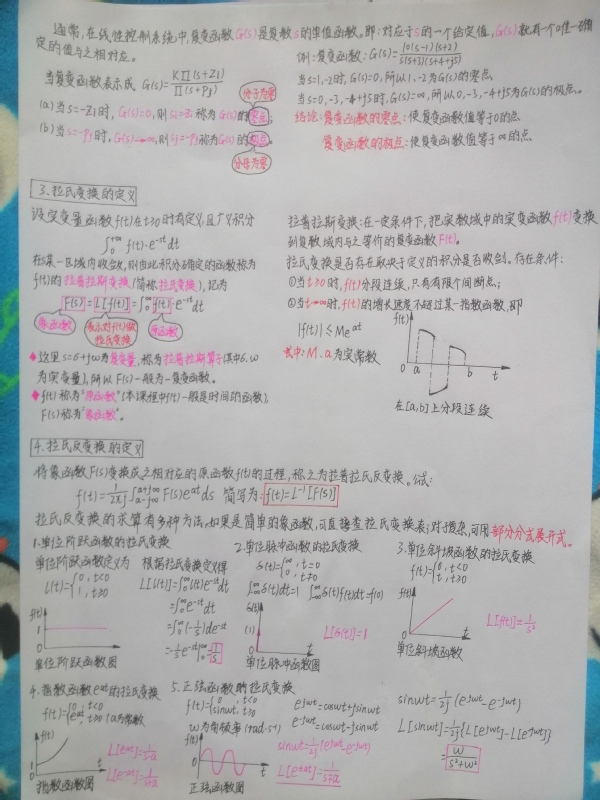 通常,在线性控制系统中,复变函数G(s)是复数s的单值函数。即:对应于s的一个给定值,G(s)就有一个唯一确
定的值与之相对应。
当复变函数表示成 G(s)=K∏(s+Zi)/∏(s+Pj)
分子为零
(a)当s=-Zi时,G(s)=0,则si=-Zi称为G(s)的零点;
(b)当s=-Pj时,G(s)→∞,则sj=-Pj称为G(s)的极点。
分母为零
例:复变函数:G(s)=10(s-1)(s+2)/s(s+3)(s+4+j5)
当s=1,-2时,G(s)=0,所以1,-2为G(s)的零点
当s=0,-3,-4-j5时,G(s)=∞,所以0,-3,-4-j5为G(s)的极点。
结论:复变函数的零点:使复变函数值等于0的点
复变函数的极点:使复变函数值等于∞的点
3.拉氏变换的定义
设实变量函数f(t)在t≥0时有定义,且广义积分
∫₀^{+∞} f(t)·e^{-st}dt
在s某一区域内收敛,则由此积分确定的函数称为
f(t)的拉普拉斯变换(简称拉氏变换),记为
F(s)=L[f(t)]=∫₀^{+∞}f(t)·e^{-st}dt
象函数 表示对f(t)做拉氏变换 原函数
◆这里s=σ+jω为复变量,称为拉普拉斯算子(其中σ、ω
为实变量),所以F(s)一般为一复变函数。
◆f(t)称为"原函数"(本课程中f(t)一般是时间的函数),
F(s)称为"象函数"。
拉普拉斯变换:在一定条件下,把实数域中的实变函数f(t)变换
到复数域内与之等价的复变函数F(s)。
拉氏变换是否存在取决于定义的积分是否收敛。存在条件:
①当t≥0时,f(t)分段连续,只有有限个间断点;
②当t→∞时,f(t)的增长速度不超过某一指数函数,即
|f(t)|≤Me^{at}
式中:M、a为实常数
f(t)
0 a b t
在[a,b]上分段连续
4.拉氏反变换的定义
将象函数F(s)变换成与之相对应的原函数f(t)的过程,称之为拉普拉氏反变换。公式:
简写为:f(t)=L⁻¹[F(s)]
拉氏反变换的求算有多种方法,如果是简单的象函数,可直接查拉氏变换表;对于复杂,可用部分分式展开式。
1.单位阶跃函数的拉氏变换
单位阶跃函数定义为 根据拉氏变换定义得
1(t)={0, t<0
1, t≥0
L[1(t)]=∫₀^∞1(t)e^{-st}dt
=∫₀^∞e^{-st}dt
=∫₀^∞(-1/s)de^{-st}
=-1/s e^{-st}|₀^∞=1/s
f(t)
1
0 t
单位阶跃函数图
2.单位脉冲函数的拉氏变换
δ(t)={∞, t=0
0, t≠0
∫_{-∞}^{∞}δ(t)dt=1 ∫_{-∞}^{∞}δ(t)f(t)dt=f(0)
δ(t)
(1)
L[δ(t)]=1
0 t
单位脉冲函数图
3.单位斜坡函数的拉氏变换
f(t)={0, t<0
t, t≥0
f(t)
L[f(t)]=1/s²
0 t
单位斜坡函数
4.指数函数e^{at}的拉氏变换
f(t)={0, t<0
e^{at}, t≥0 (a为常数
f(t)
1
0 t
L[e^{at}]=1/s-a
L[e^{-at}]=1/s+a
指数函数图
5.正弦函数的拉氏变换
f(t)={0, t<0
sinωt, t≥0
ω为角频率(rad·s⁻¹)
f(t)
0 t
正弦函数图
e^{jωt}=cosωt+jsinωt
e^{-jωt}=cosωt-jsinωt
sinωt=1/2j(e^{jωt}-e^{-jωt})
sinωt=1/2j(e^{jωt}-e^{-jωt})
L[sinωt]=1/2j{L[e^{jωt}]-L[e^{-jωt}]}
=ω/s²+ω²